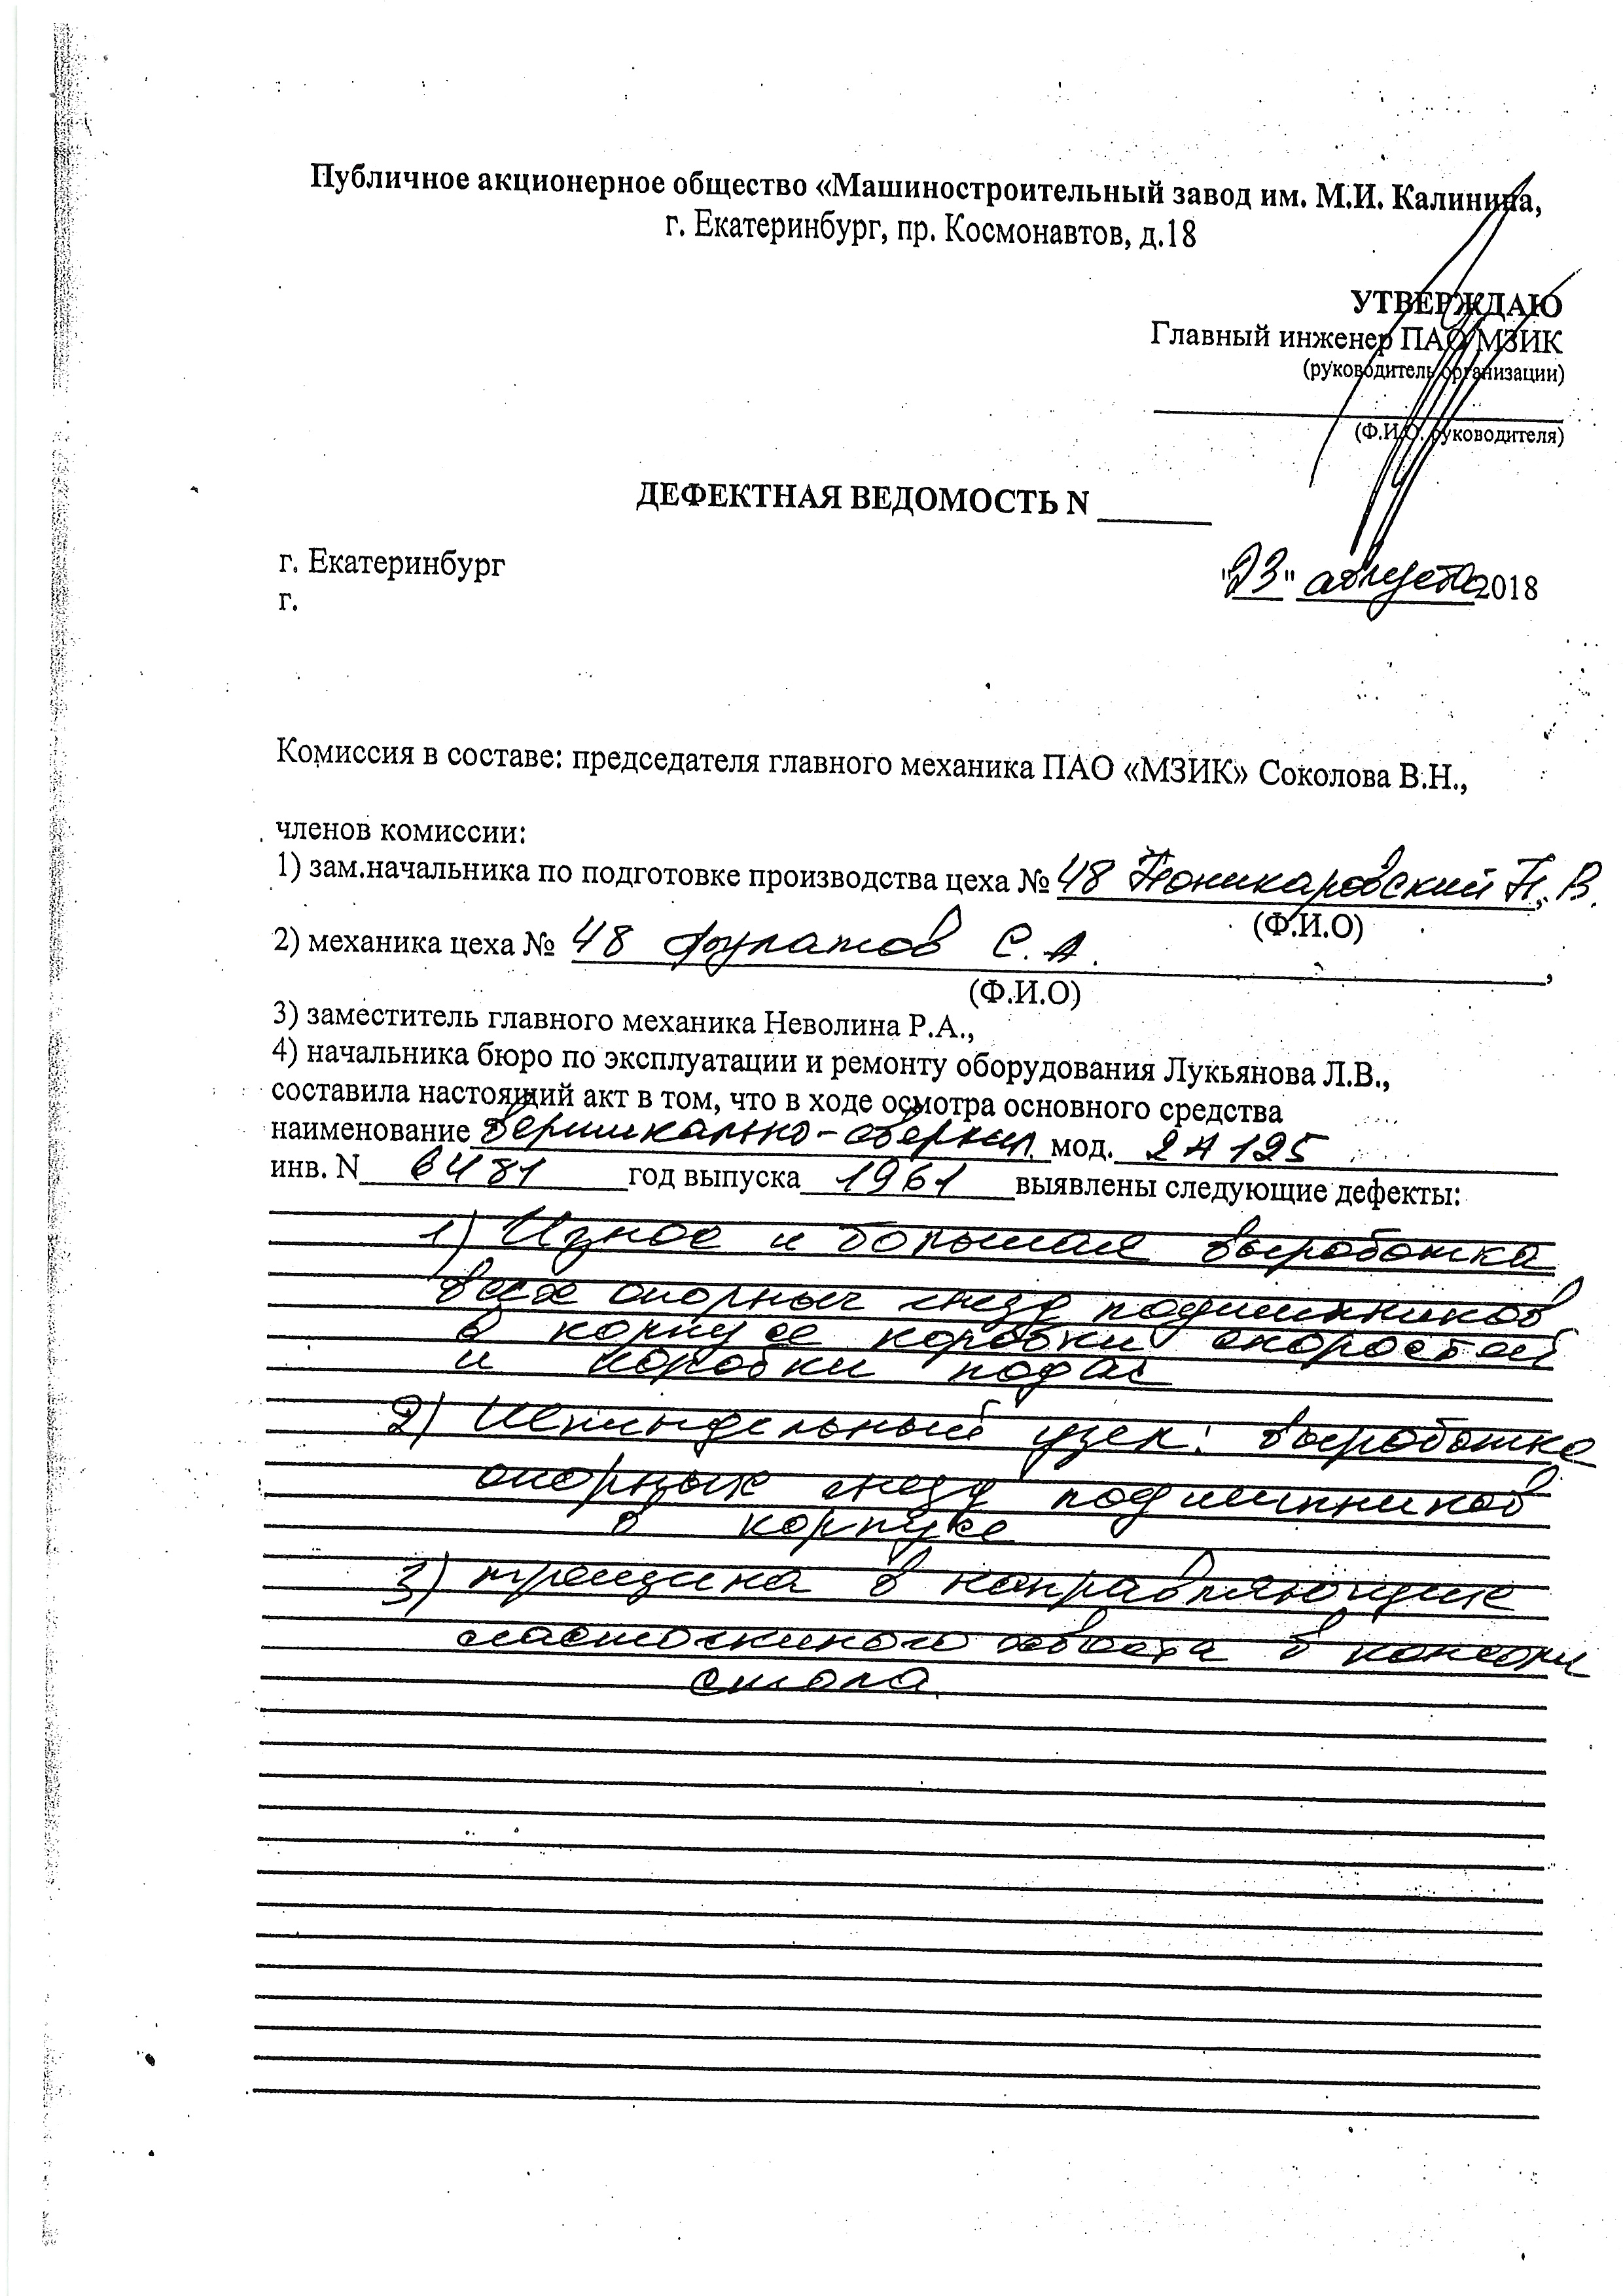 Публичное акционерное общество «Машиностроительный завод им. М.И. Калинина,
г. Екатеринбург, пр. Космонавтов, д.18
УТВЕРЖДАЮ
Главный инженер ПАО МЗИК
(руководитель организации)
(Ф.И.О. руководителя)
ДЕФЕКТНАЯ ВЕДОМОСТЬ N
г. Екатеринбург "23" августа 2018
г.
Комиссия в составе: председателя главного механика ПАО «МЗИК» Соколова В.Н.,
членов комиссии:
1) зам.начальника по подготовке производства цеха № 48 Н.В.
(Ф.И.О)
2) механика цеха № 48 С.А.,
(Ф.И.О)
3) заместитель главного механика Неволина Р.А.,
4) начальника бюро по эксплуатации и ремонту оборудования Лукьянова Л.В.,
составила настоящий акт в том, что в ходе осмотра основного средства
наименование Вертикально-сверлил. мод. 2А125
инв. N 6481 год выпуска 1961 выявлены следующие дефекты:
1) Износ и большая выработка
всех опорных гнезд подшипников
в корпусе коробки скоростей
и коробки подач
2) Шпиндельный узел: выработка
опорных гнезд подшипников
в корпусе
3) трещина в направляющих
ласточкиного хвоста в консоли
стола